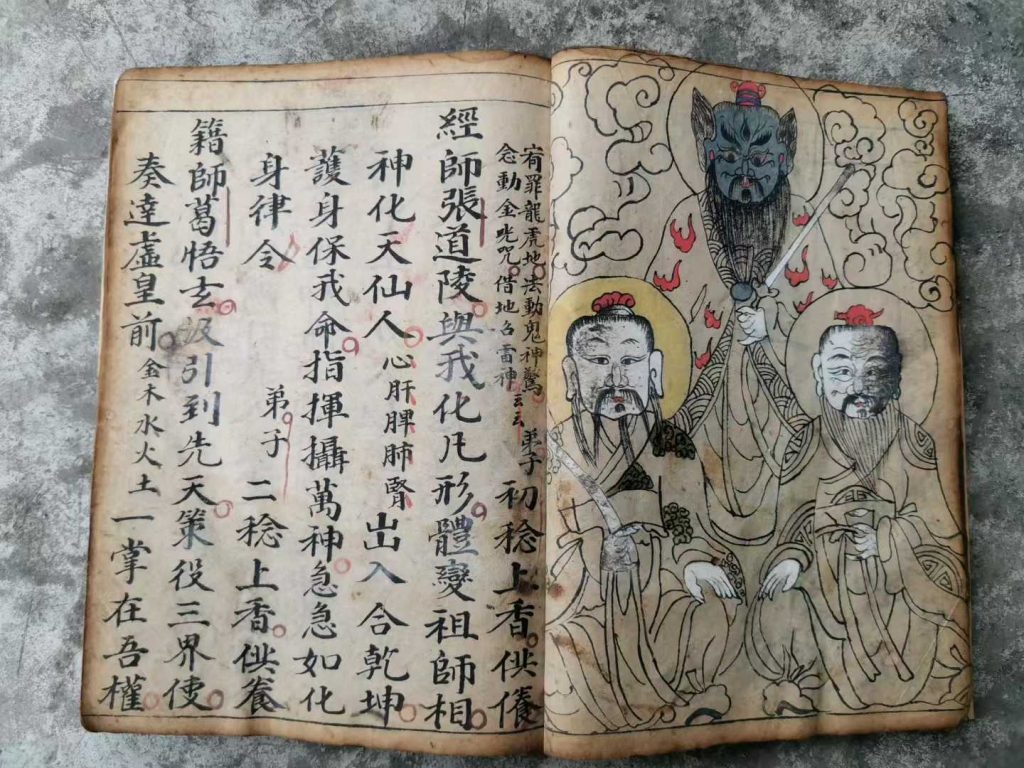 宥罪龍虎地法動鬼神驚
念動金咣咒借地召雷神云云
弟子初稔上香供養
經師張道陵與我化凡形體變祖師相
神化天仙人心肝脾肺腎出入合乾坤
護身保我命指揮攝萬神急急如化
身律令 弟子二稔上香供養
籍師葛悟玄汲引到先天策役三界使
奏達虛皇前金木水火土一掌在吾權